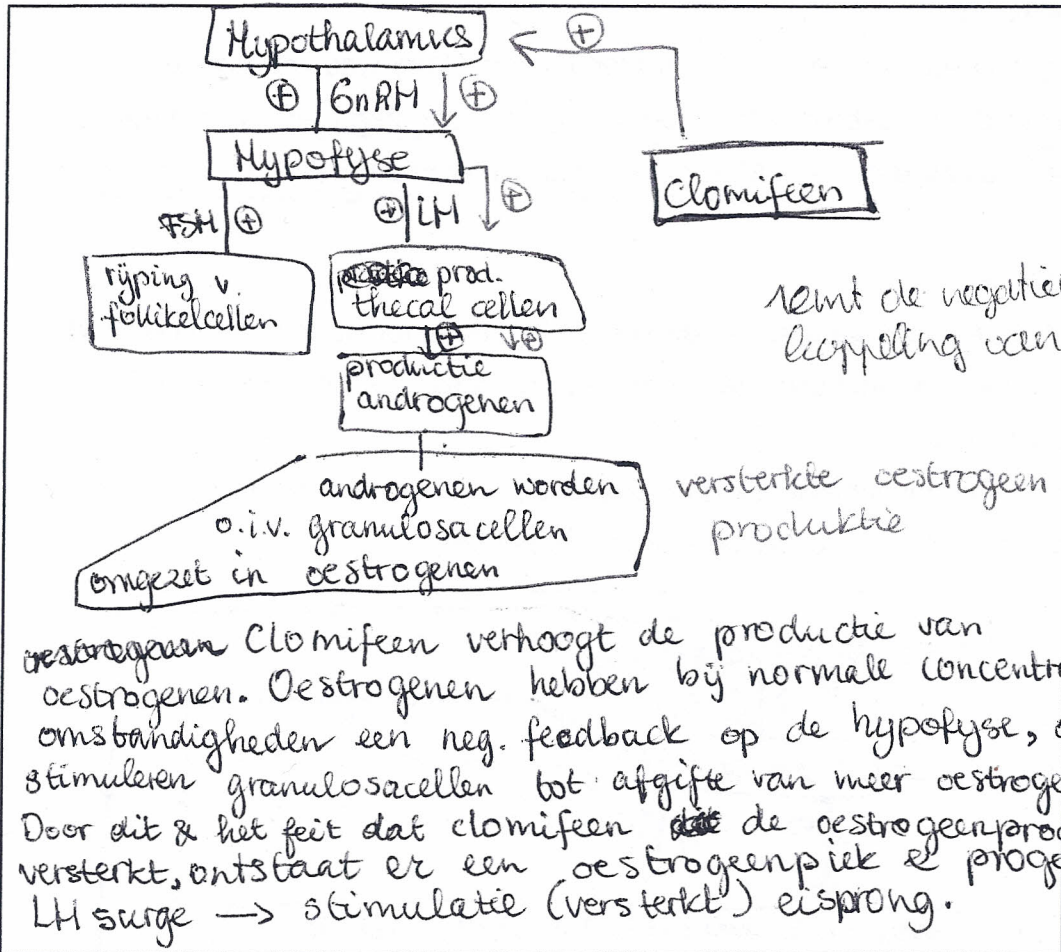 Hypothalamus
⊕
⊕ GnRH ⊕
Hypofyse
Clomifeen
FSH ⊕
⊕ LH ⊕
rijping v.
follikelcellen
prod.
thecal cellen
remt de negatie
koppeling van
⊕ ⊕
productie
androgenen
androgenen worden
o.i.v. granulosacellen
omgezet in oestrogenen
versterkte oestrogeen
produktie
Clomifeen verhoogt de productie van
oestrogenen. Oestrogenen hebben bij normale concentr
omstandigheden een neg. feedback op de hypofyse,
stimuleren granulosacellen tot afgifte van meer oestroge
Door dit & het feit dat clomifeen de oestrogeenprod
versterkt, ontstaat er een oestrogeenpiek & proge
LH surge → stimulatie (versterkt) eisprong.